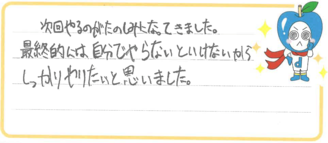 次回やるのがたのしみになってきました。
最終的には、自分でやらないといけないから
しっかりやりたいと思いました。
d